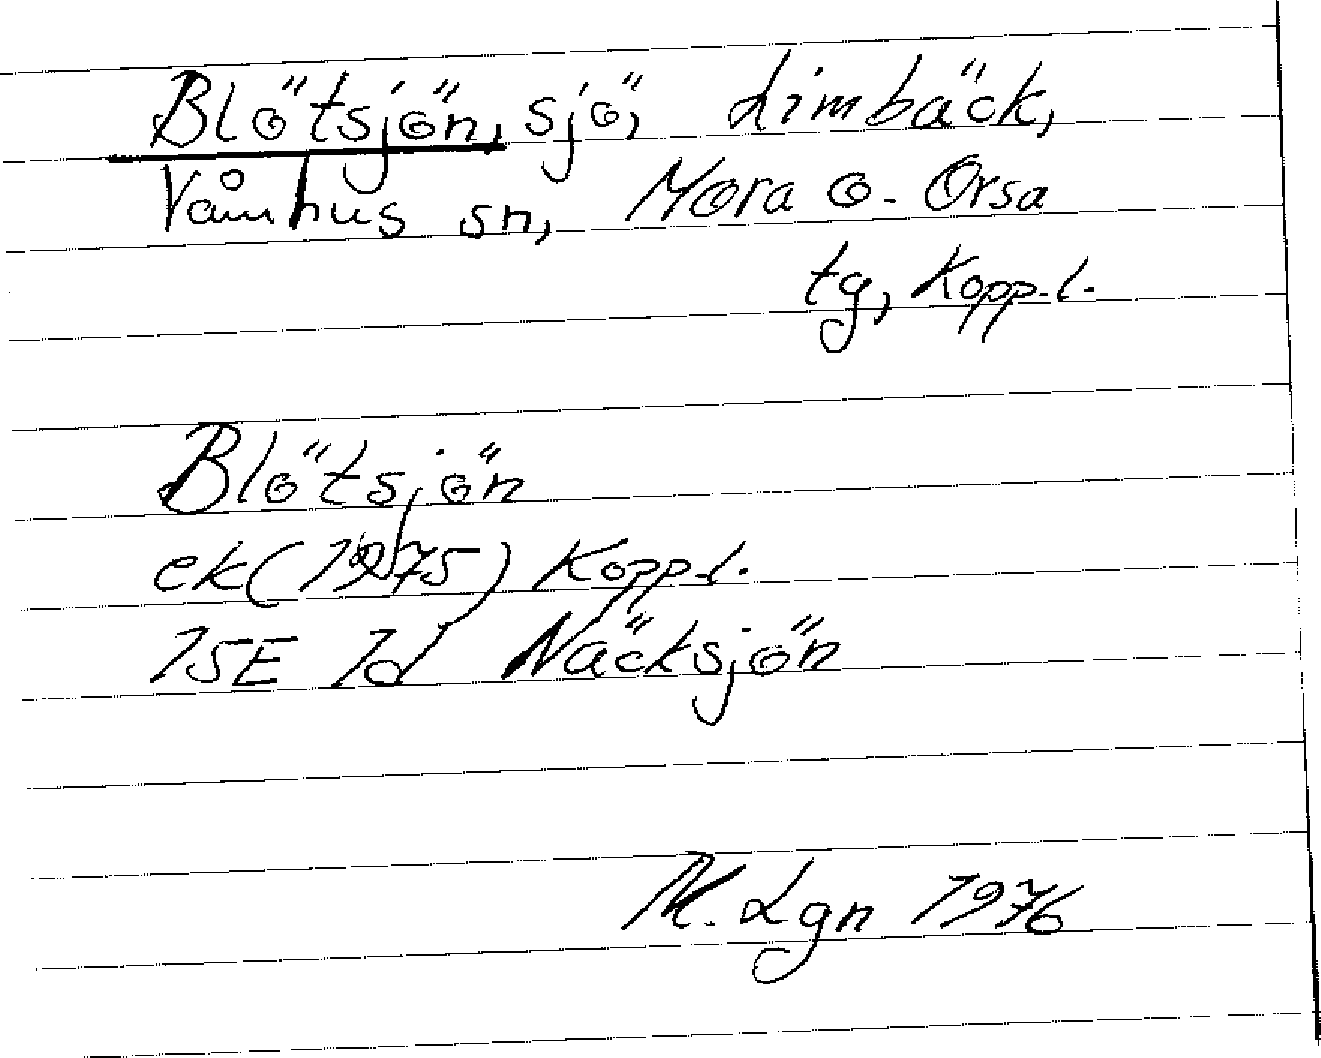 Blötsjön, sjö, Limbäck,
Våmhus sn, Mora o. Orsa
tg, Kopp.l.
Blötsjön
ek (1975) Kopp.l.
15E 1d Näcksjön
M. Lgn 1976